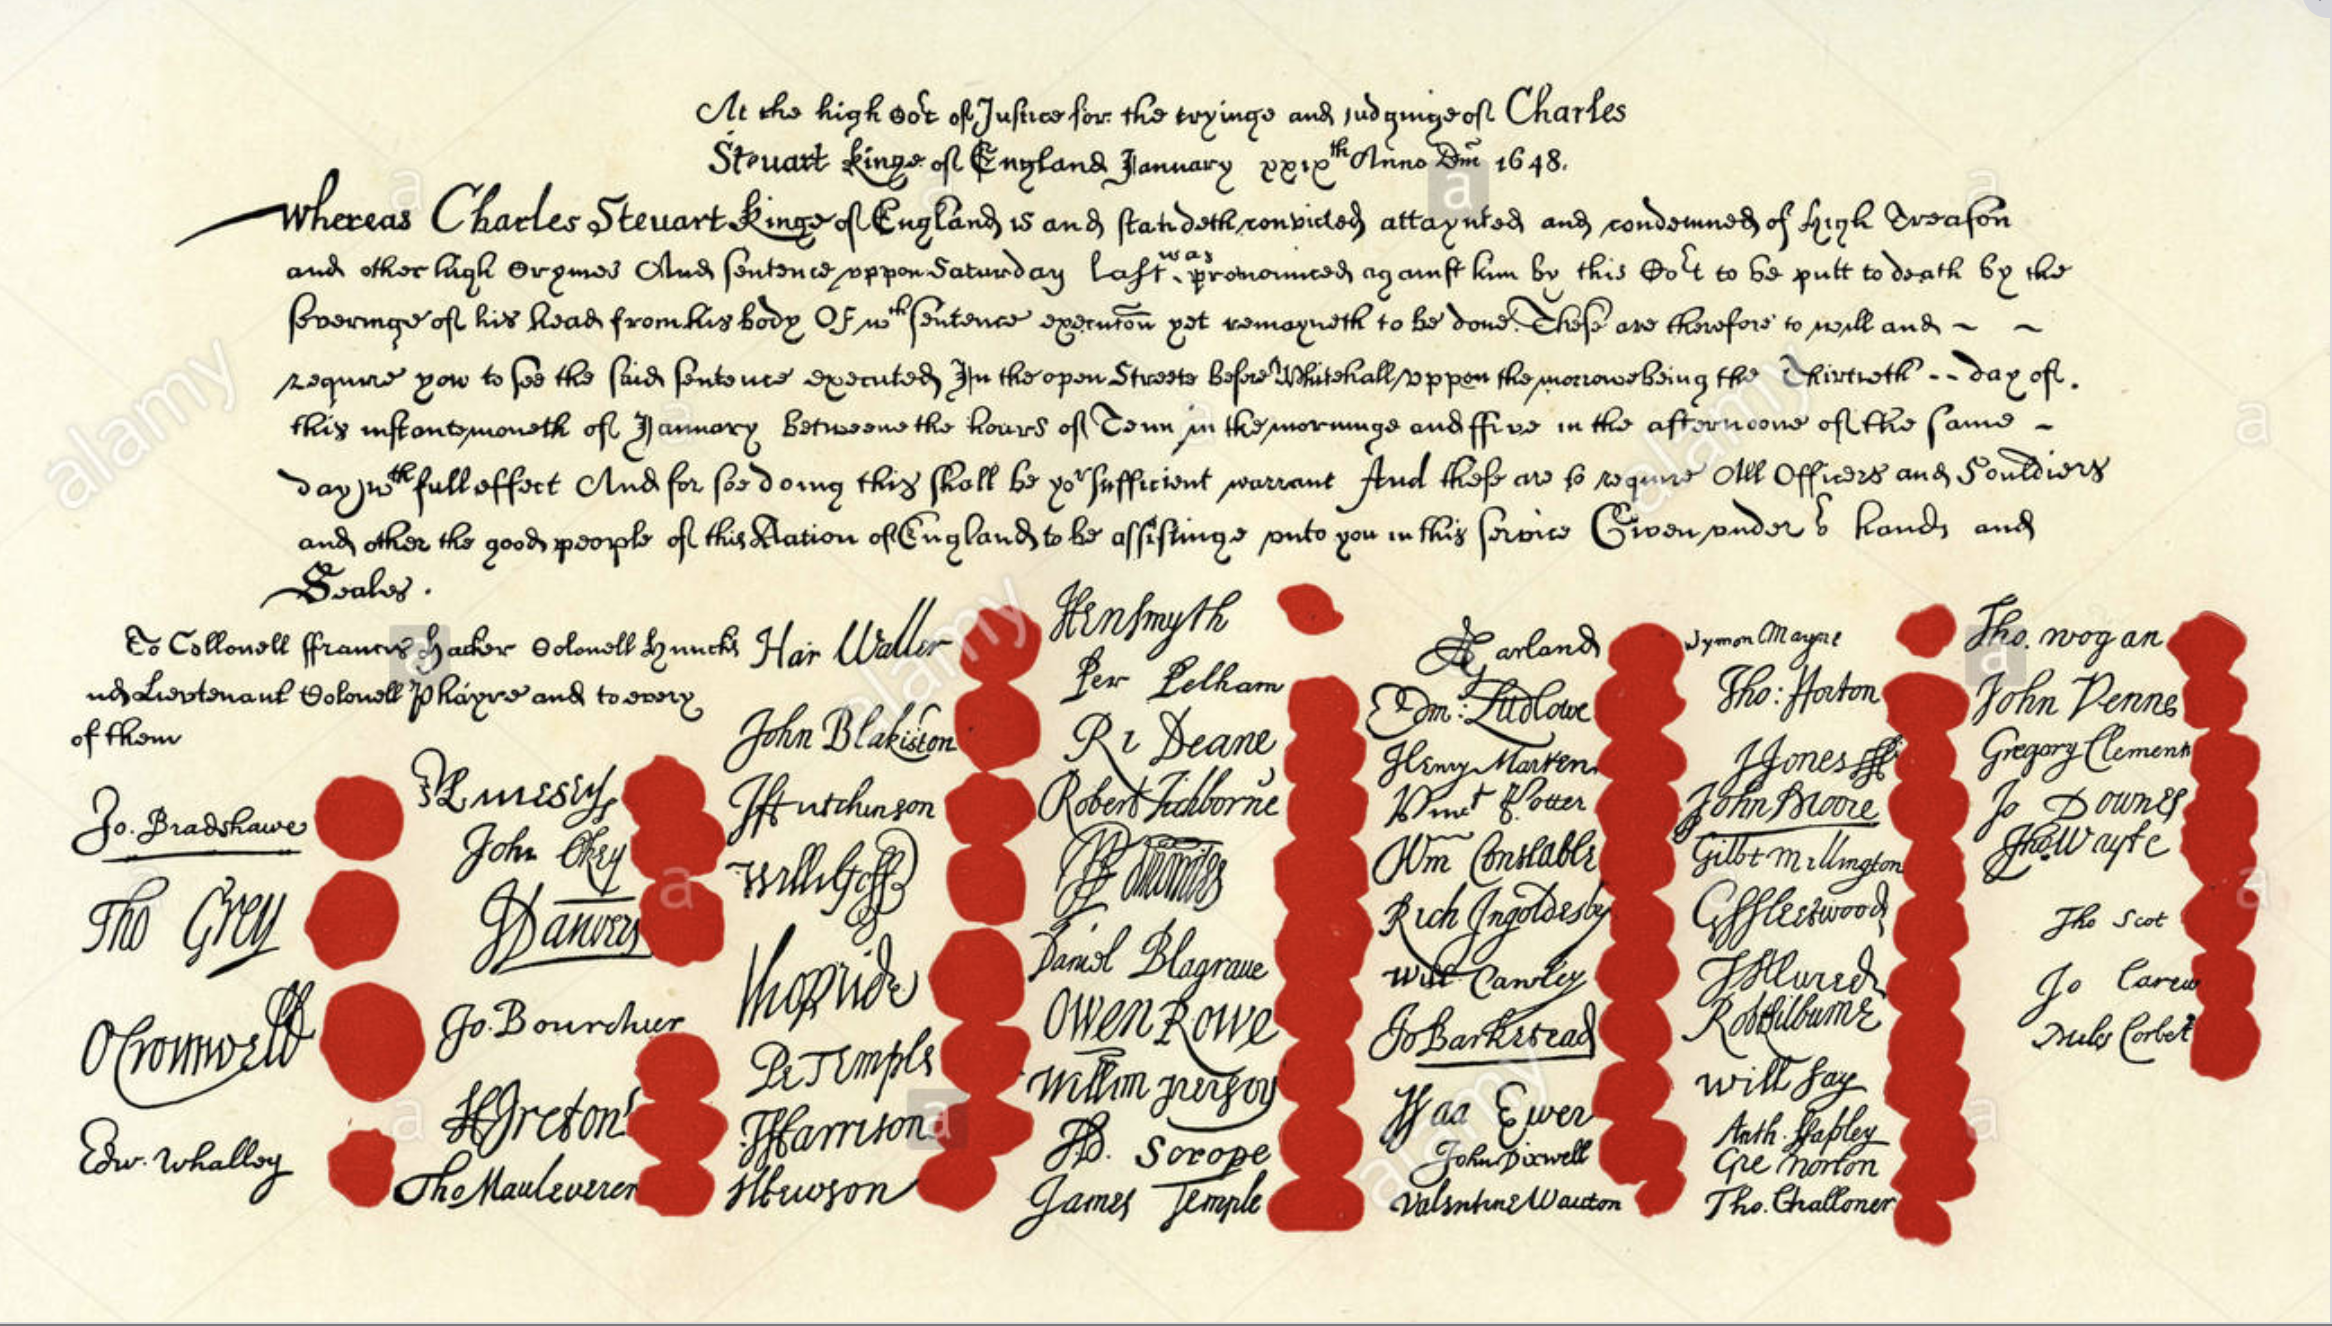 At the high Co^rt of Justice for the tryinge and judginge of Charles
Steuart Kinge of England January xxix^th Anno Dm̄ 1648.
Whereas Charles Steuart Kinge of England is and standeth convicted attaynted and condemned of High Treason
and other high Crymes And sentence uppon Saturday last was pronounced against him by this Co^rt to be putt to death by the
severinge of his head from his body Of w^ch sentence execucōn yet remayneth to be done These are therefore to will and ~ ~
require yow to see the said sentence executed In the open Streete before Whitehall uppon the morrowe being the Thirtieth -- day of
this instante moneth of January betweene the houres of Tenn in the morninge and ffive in the afternoone of the same ~
day w^th full effect And for soe doing this shall be yo^r sufficient warrant And these are to require All Officers and Souldiers
and other the good people of this Nation of England to be assistinge unto you in this service Given under o^r hands and
Seales.
To Collonell ffrancis Hacker Colonell Huncks
nd Lieutenant Colonell Phayre and to every
of them
Jo. Bradshawe
Tho Grey
O Cromwell
Edw. Whalley
M Livesey
John Okey
J Danvers
Jo. Bourchier
H Ireton
Tho Mauleverer
Har Waller
John Blakiston
J Hutchinson
Willi Goff
Tho Pride
Pe Temple
T Harrison
J Hewson
Hen Smyth
Per Pelham
Ri Deane
Robert Tichborne
H Edwardes
Daniel Blagrave
Owen Rowe
Willm Purfoy
Ad. Scrope
James Temple
A Garland
Edm: Ludlowe
Henry Marten
Vinct Potter
Wm Constable
Rich Ingoldesby
Will Cawley
Jo Barkstead
Isaa Ewer
John Dixwell
Valentine Wauton
Symon Mayne
Tho: Horton
J Jones
John Moore
Gilbt Millington
G Fleetwood
J Alured
Rob Lilburne
Will Say
Anth. Stapley
Gre Norton
Tho. Challoner
Tho. Wogan
John Venne
Gregory Clement
Jo Downes
Tho Wayte
Tho Scot
Jo Carew
Miles Corbet
alamy
a